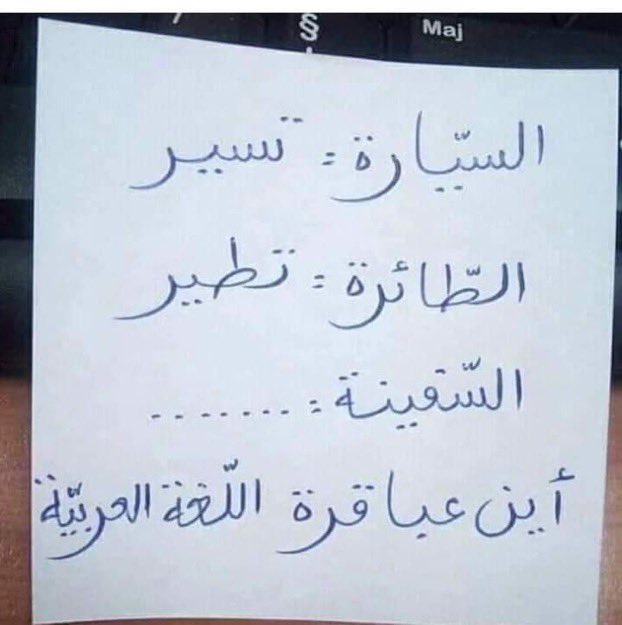 §
Maj
السيّارة : تسير
الطّائرة : تطير
السّفينة : ........
أين عباقرة اللّغة العربيّة